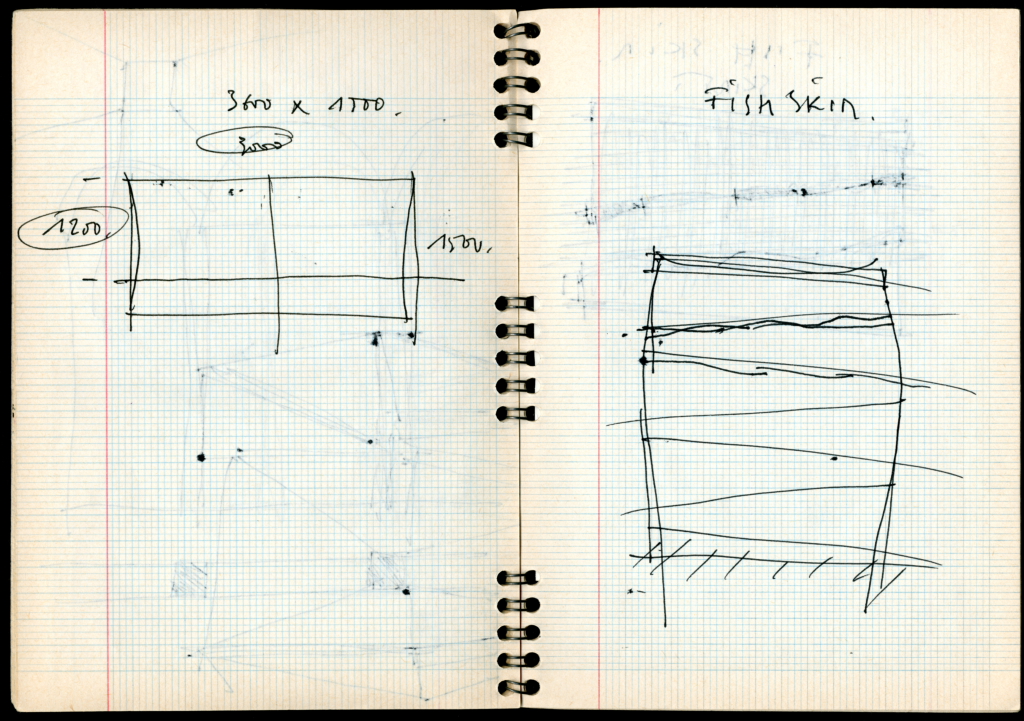 3600 x 1500.
3000
1200
1500.
FISH SKIN.